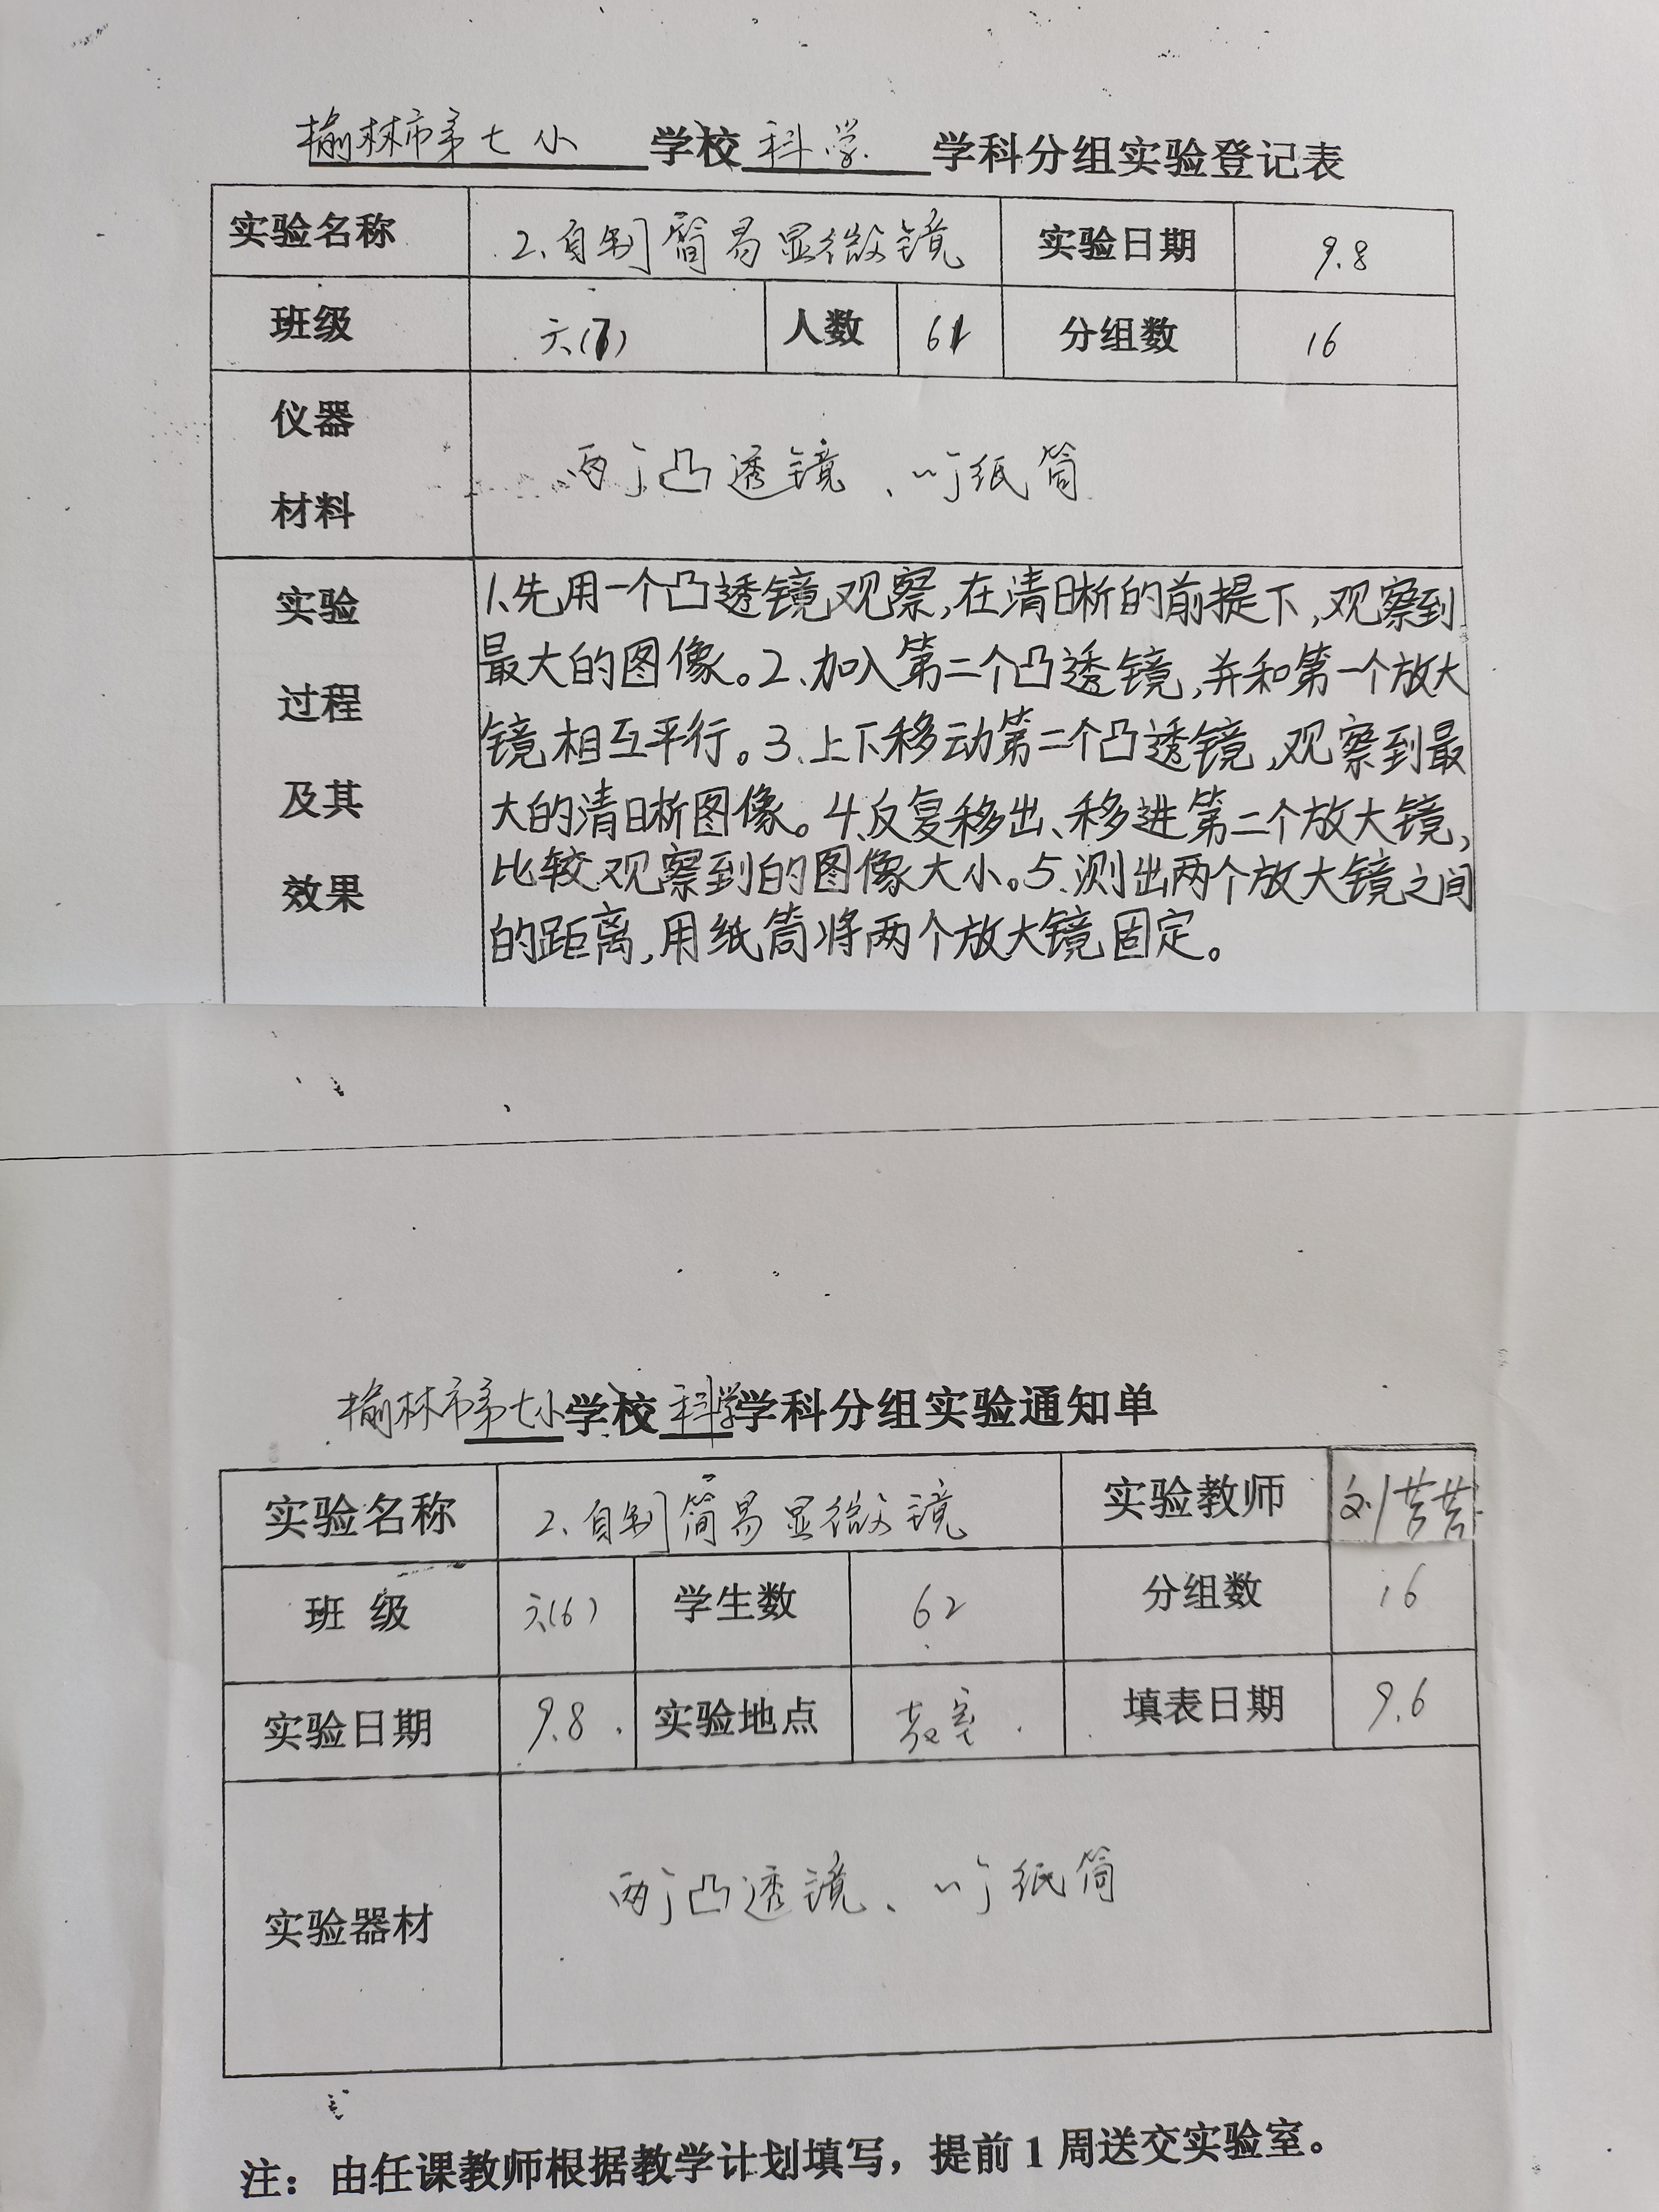 榆林市第七小学校科学学科分组实验登记表
实验名称 2、自制简易显微镜 实验日期 9.8
班级 六(7) 人数 61 分组数 16
仪器材料 两个凸透镜、一个纸筒
实验过程及其效果
1、先用一个凸透镜观察,在清晰的前提下,观察到
最大的图像。2、加入第二个凸透镜,并和第一个放大
镜相互平行。3、上下移动第二个凸透镜,观察到最
大的清晰图像。4、反复移出、移进第二个放大镜,
比较观察到的图像大小。5、测出两个放大镜之间
的距离,用纸筒将两个放大镜固定。
榆林市第七小学校科学学科分组实验通知单
实验名称 2、自制简易显微镜 实验教师 刘苦苦
班 级 六(6) 学生数 62 分组数 16
实验日期 9.8. 实验地点 教室. 填表日期 9.6
实验器材 两个凸透镜、一个纸筒
注:由任课教师根据教学计划填写,提前1周送交实验室。